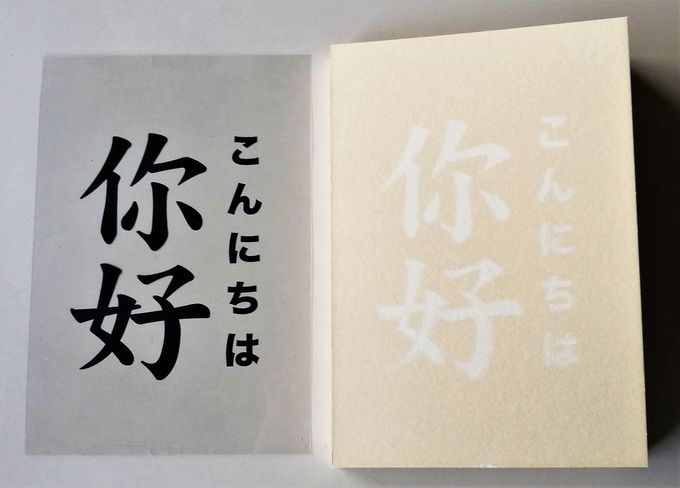 こんにちは
你好
こんにちは
你好